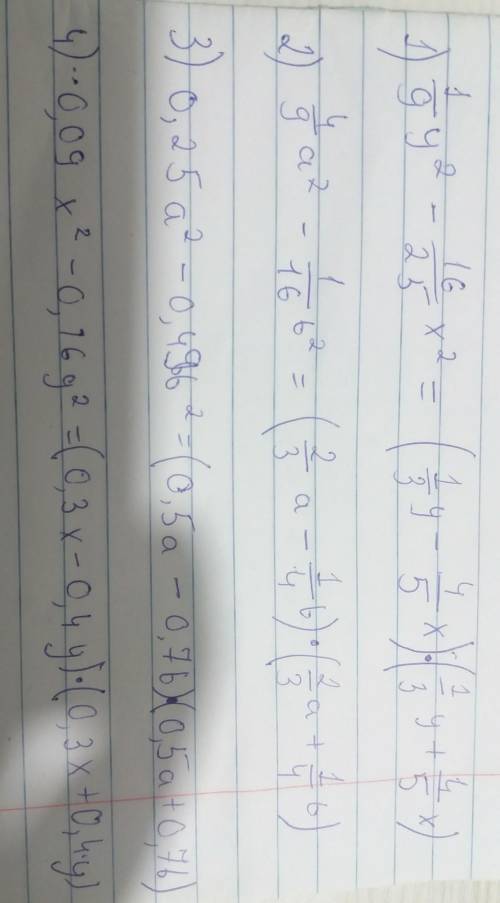 1) 1/9 y² - 16/25 x² = (1/3 y - 4/5 x)·(1/3 y + 4/5 x)
2) 4/9 a² - 1/16 b² = (2/3 a - 1/4 b)·(2/3 a + 1/4 b)
3) 0,25a² - 0,49b² = (0,5a - 0,7b)·(0,5a + 0,7b)
4) 0,09 x² - 0,16y² = (0,3x - 0,4y)·(0,3x + 0,4y)